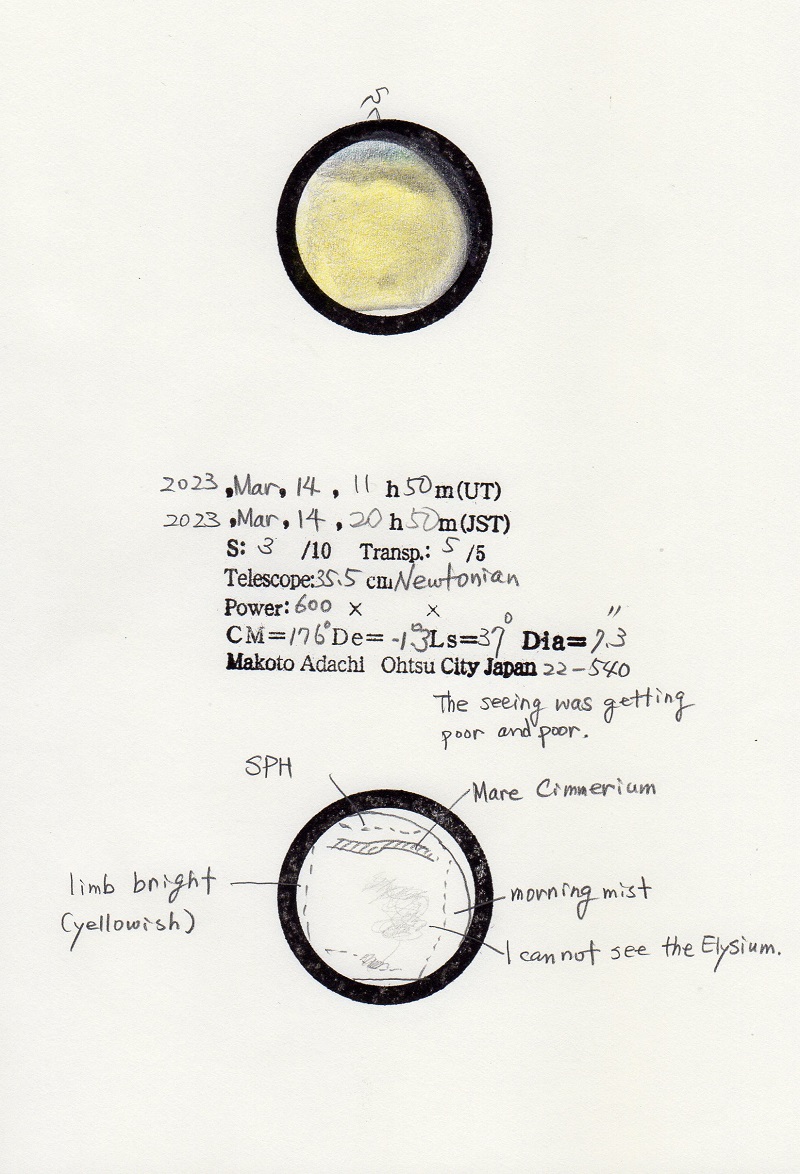 S
2023 , Mar, 14 , 11 h 50 m (UT)
2023 , Mar, 14 , 20 h 50 m (JST)
S: 3 /10 Transp.: 5 /5
Telescope: 35.5 cm Newtonian
Power: 600 × ×
CM=176° De= -1.3° Ls=37° Dia= 7.3"
Makoto Adachi Ohtsu City Japan 22-540
The seeing was getting
poor and poor.
SPH
Mare Cimmerium
limb bright
(yellowish)
morning mist
I cannot see the Elysium.